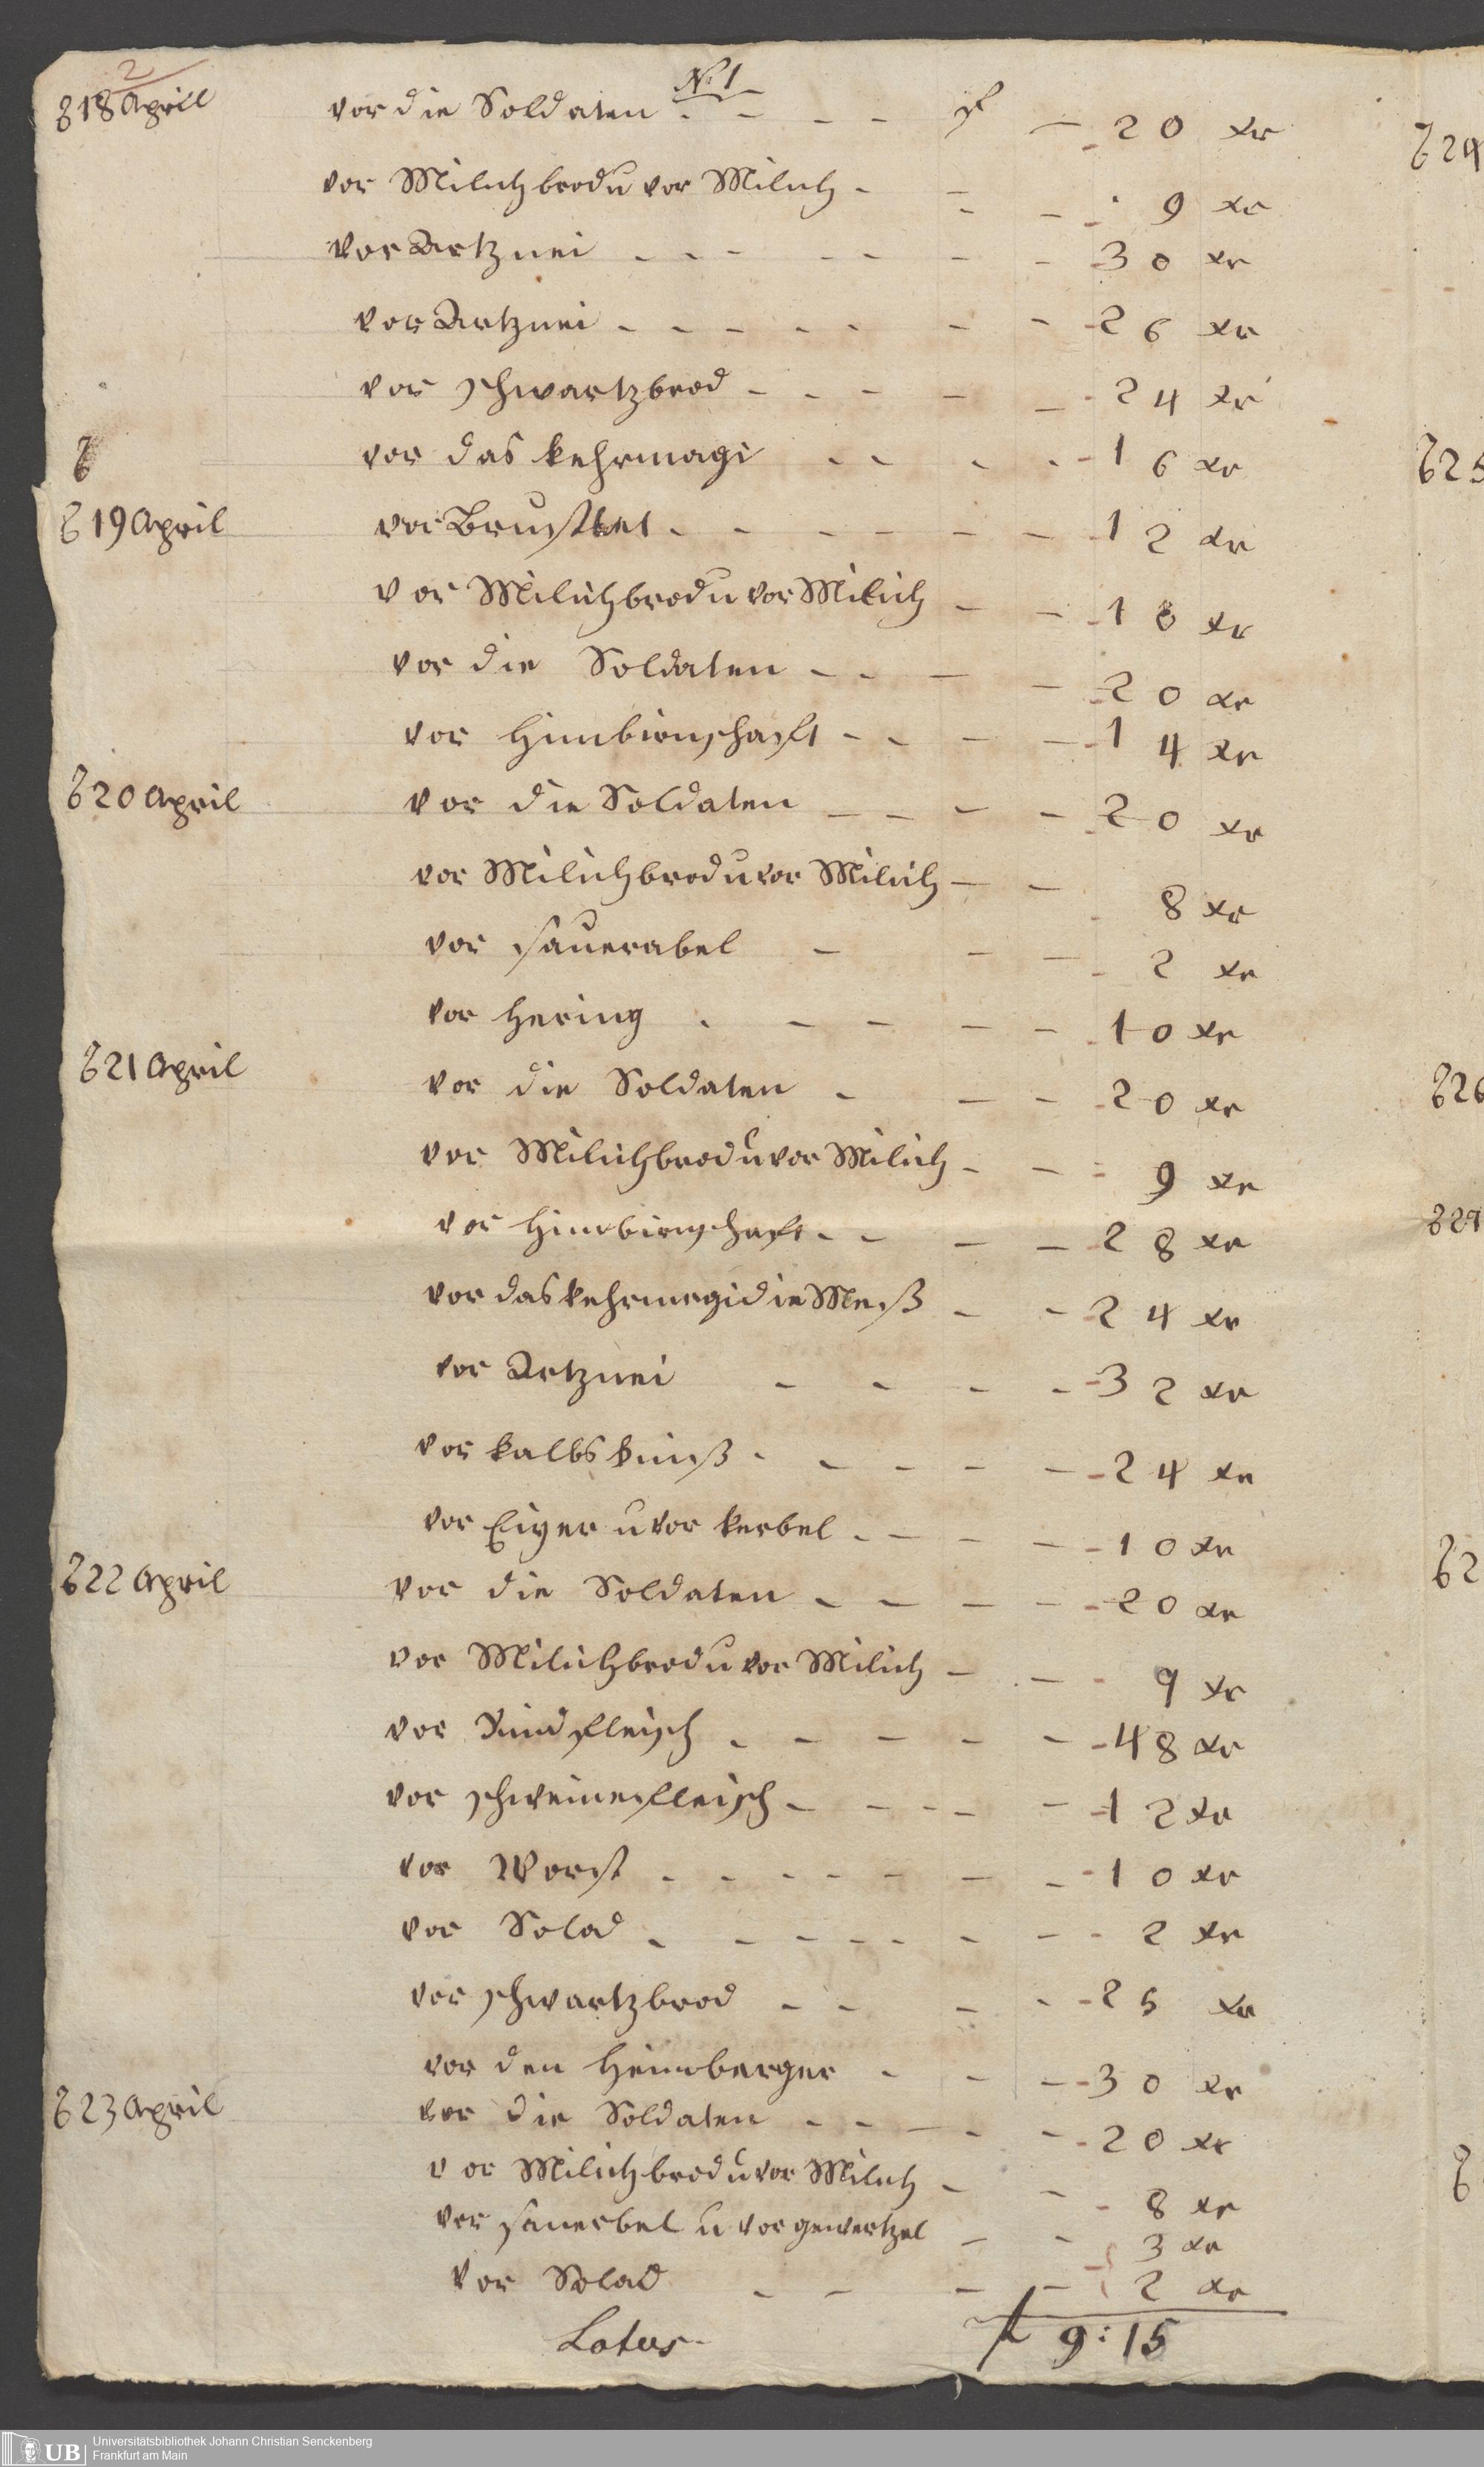 2
N: 1
d 18 April vor die Soldaten - - - - f - 20 xr
vor Milichbrod u vor Milich - - - 9 xr
vor Artznei - - - - - - 30 xr
vor Artznei - - - - - - 26 xr
vor schwartzbrod - - - - - 24 xr
d vor das kehrmagi - - - - 16 xr
d 19 April vor Brusttee - - - - - 12 xr
vor Milichbrod u vor Milich - - 18 xr
vor die Soldaten - - - - 20 xr
vor himbirnschafft - - - - 14 xr
d 20 April vor die Soldaten - - - - 20 xr
vor Milichbrod u vor Milich - - 8 xr
vor saurrabel - - - 2 xr
vor hering - - - - - 10 xr
d 21 April vor die Soldaten - - - 20 xr
vor Milichbrod u vor Milich - - - 9 xr
vor himbirnschaft - - - - 28 xr
vor das kehrmegi die Meß - - 24 xr
vor Artznei - - - - 32 xr
vor kalbs - - - - - 24 xr
vor Eiyer u vor kerbel - - - - 10 xr
d 22 April vor die Soldaten - - - - 20 xr
vor Milichbrod u vor Milich - - - 9 xr
vor Rindfleisch - - - - - 48 xr
vor schweinefleisch - - - - - 12 xr
vor Worst - - - - - - - 10 xr
vor Solad - - - - - - - - 2 xr
vor schwartzbrod - - - - 25 xr
vor den heimberger - - - 30 xr
d 23 April vor die Soldaten - - - - - 20 xr
vor Milichbrod u vor Milich - - - 8 xr
vor sauerbel u vor gewertzel - - 3 xr
vor Solad - - - - 2 xr
Latus - f 9: 15
d 24
d 25
d 26
d 2
d
UB
Universitätsbibliothek Johann Christian Senckenberg
Frankfurt am Main